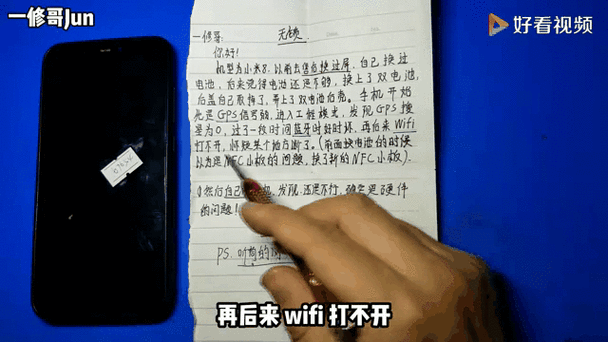 一修哥Jun
好看视频
无锁
一修哥:
你好!
机型为小米8,以前去售后换过屏,自己换过
电池,后来觉得电池还是不够,换上了双电池,
后盖自己取掉了,带上了双电池后壳。手机开始
先是GPS信号弱,进入工程模式,发现GPS搜
星为0,过了一段时间蓝牙时好时坏,再后来Wifi
打不开,怀疑某个地方断了。(前面换电池的时候
以为是NFC小板的问题,换了新的NFC小板).
然后自己 机,发现还是不行,确定是硬件
的问题!
PS.听简的
再后来 wifi 打不开